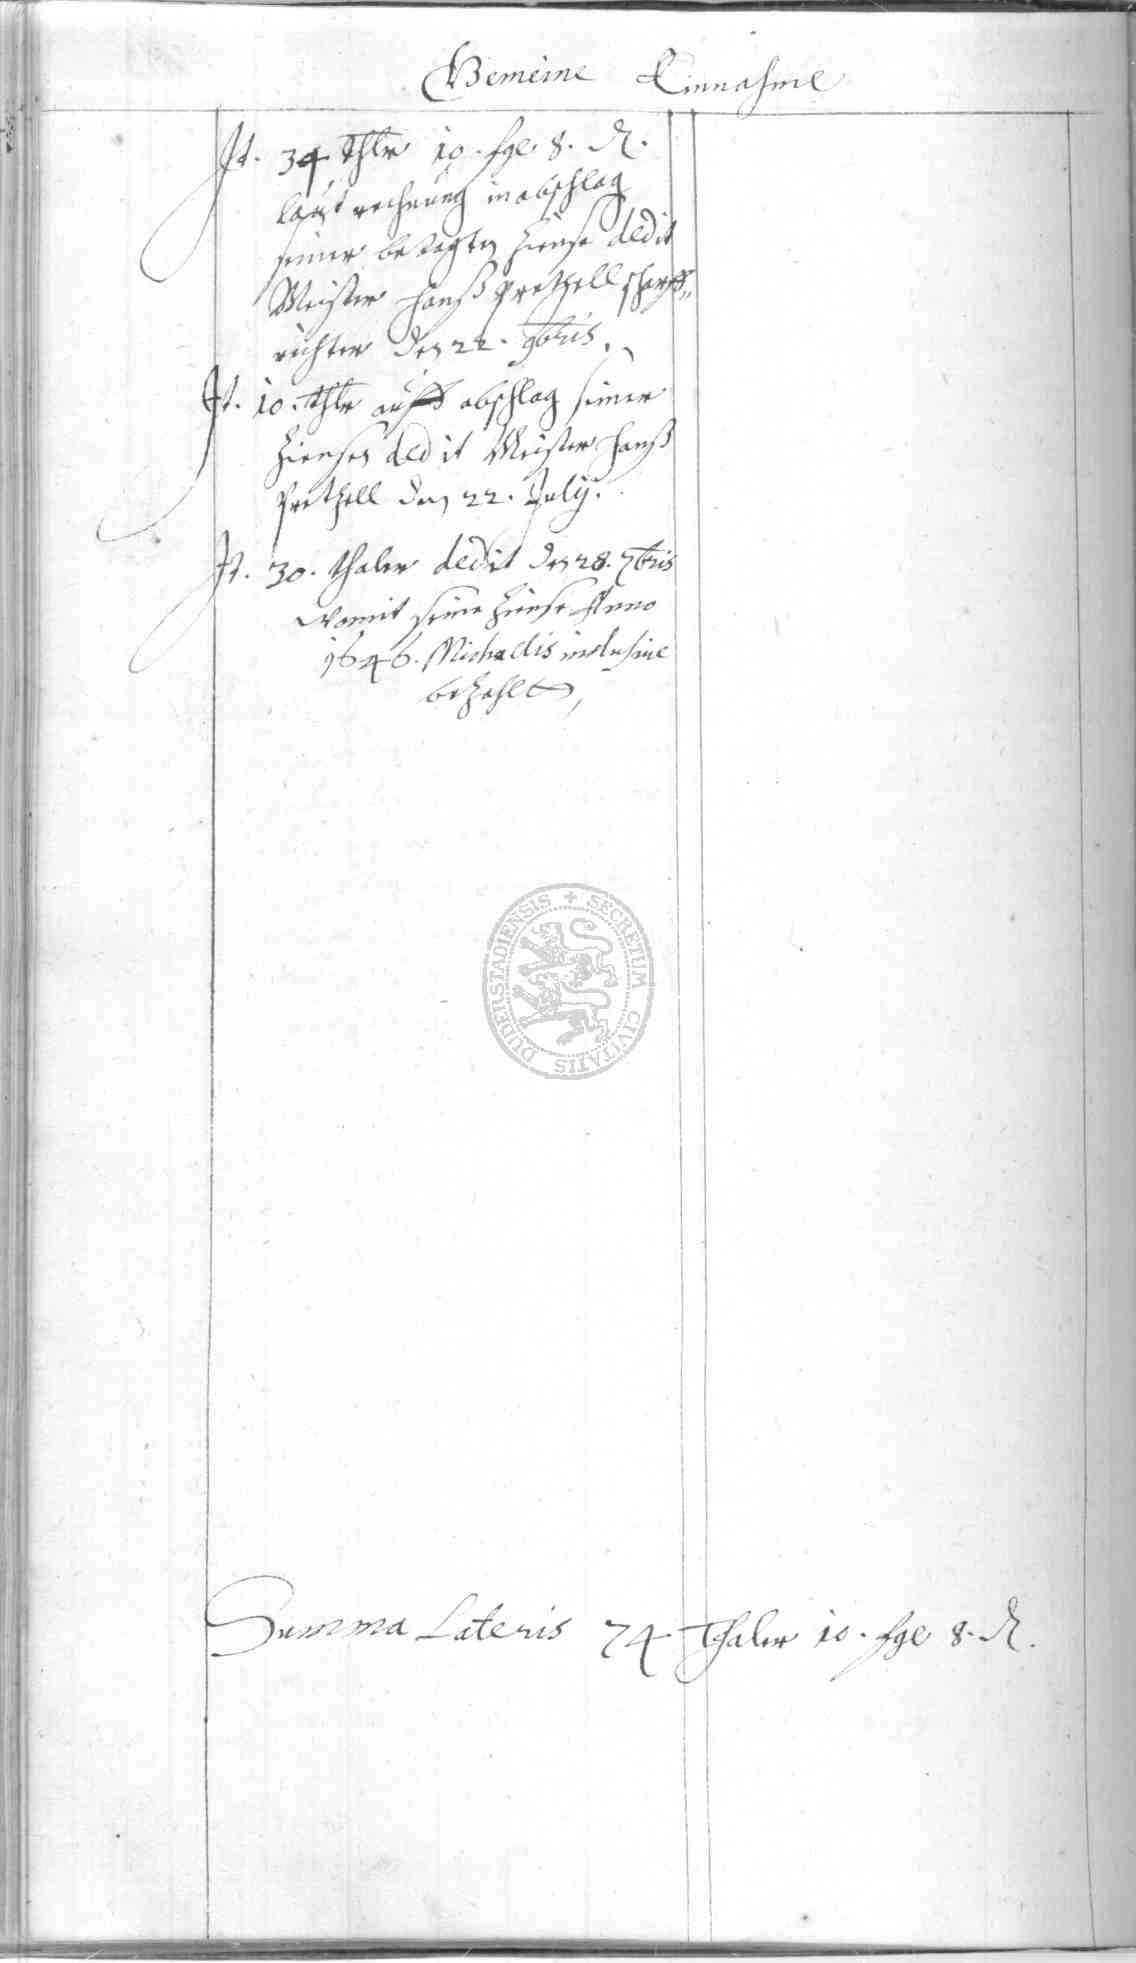 Gemeine Einnahme
It. 34 Thlr 10. sgl 8. ₰.
laut rechnung in abschlag
seiner betagten Zinse dedit
Meister Hanß Prethzell scharff„
richter den 22. 9bris.
It. 10. Thlr auff abschlag seiner
Zinsen dedit Meister Hanß
Prethzell den 22. July.
It. 30. thaler dedit den 28. 7bris
womit seine Zinse Anno
1646. Michaelis inclusive
bezahlt
DUDERSTADIENSIS + SECRETUM CIVITATIS
Summa Lateris 74 Thaler 10. sgl 8. ₰.